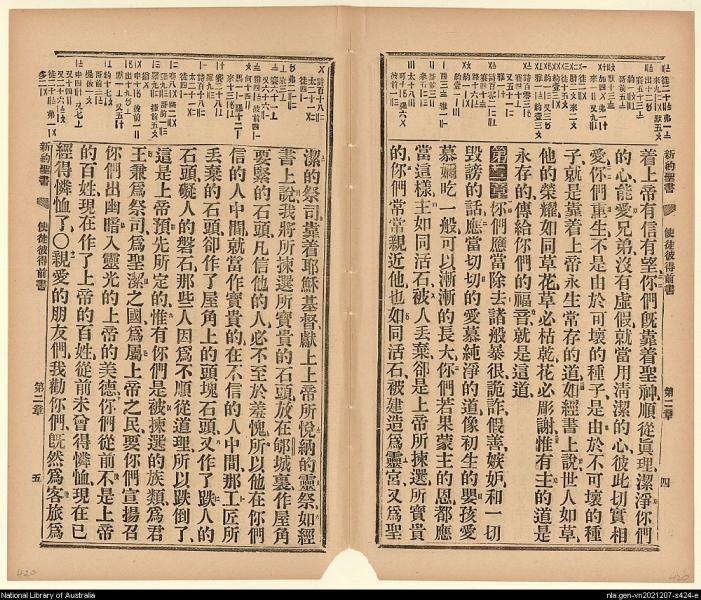 新約聖書
使徒彼得前書
第二章
四
着上帝有信有望你們旣靠着聖神順從眞理潔淨你們
的心能愛兄弟沒有虛假就當用清潔的心彼此切實相
愛你們重生不是由於可壞的種子是由於不可壞的種
子就是靠着上帝永生常存的道如經書上說世人如草
他的榮耀如同草花草必枯乾花必彫謝惟有主的道是
永存的傳給你們的福音就是這道
第二章你們應當除去諸般暴很詭詐假善嫉妒和一切
毀謗的話應當切切的愛慕純淨的道像初生的嬰孩愛
慕嬭吃一般可以漸漸的長大你們若果蒙主的恩都應
當這樣主如同活石被人丟棄卻是上帝所揀選所寶貴
的你們常常親近他也如同活石被建造爲靈宮又爲聖
潔的祭司靠着耶穌基督獻上上帝所悅納的靈祭如經
書上說我將所揀選所寶貴的石頭放在郇城裏作屋角
要緊的石頭凡信他的人必不至於羞愧所以他在你們
信的人中間就當作寶貴的在不信的人中間那工匠所
丟棄的石頭卻作了屋角上的頭塊石頭又作了跌人的
石頭礙人的磐石那些人因爲不順從道理所以跌倒了
這是上帝預先所定的惟有你們是被揀選的族類爲君
王兼爲祭司爲聖潔之國爲屬上帝之民要你們宣揚召
你們出幽暗入靈光的上帝的美德你們從前不是上帝
的百姓現在作了上帝的百姓從前未曾得憐恤現在已
經得憐恤了○親愛的朋友們我勸你們旣然爲客旅爲
新約聖書
使徒彼得前書
第二章
五
420
420
National Library of Australia
nla.gen-vn2021207-s424-e